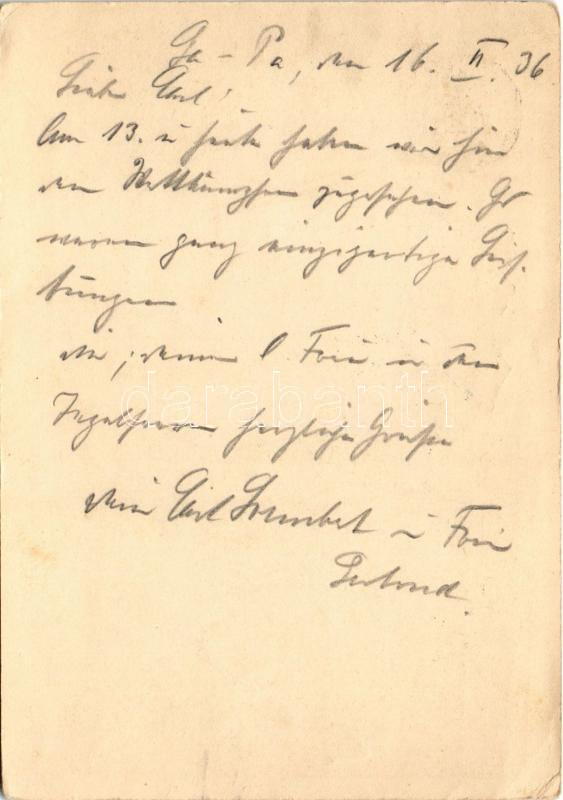 Ga - Pa, den 16. II. 36
Lieber Carl!
Am 13. u heute haben wir hier
den Wettkämpfen zugesehen. Es
waren ganz einzigartige Leis-
tungen
Dir, deiner l. Frau u den
darabanth
herzliche Grüße
dein Carl u Frau
Gertrud.